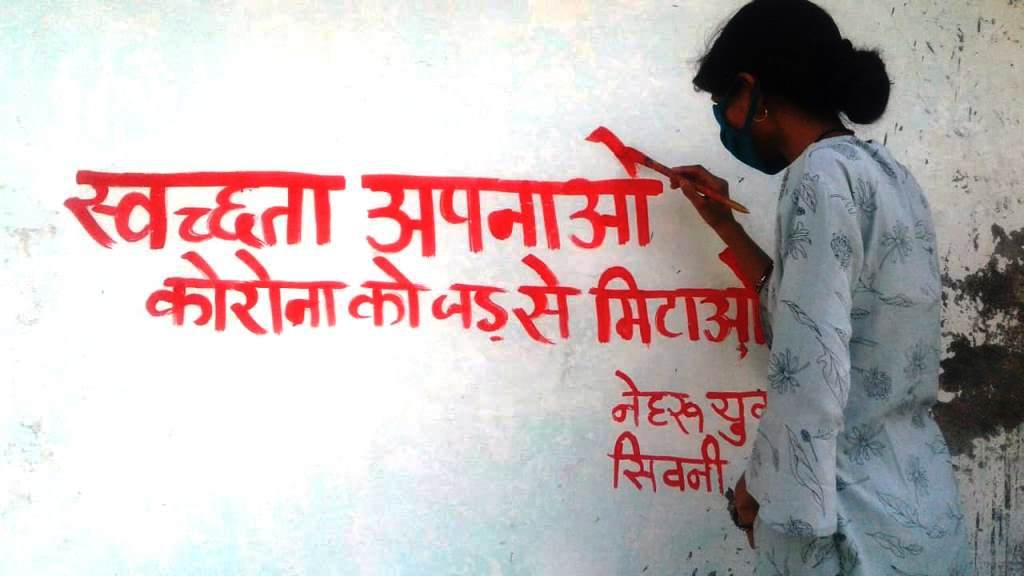 स्वच्छता अपनाओ
कोरोना को जड़ से मिटाओ
नेहरू
सिवनी